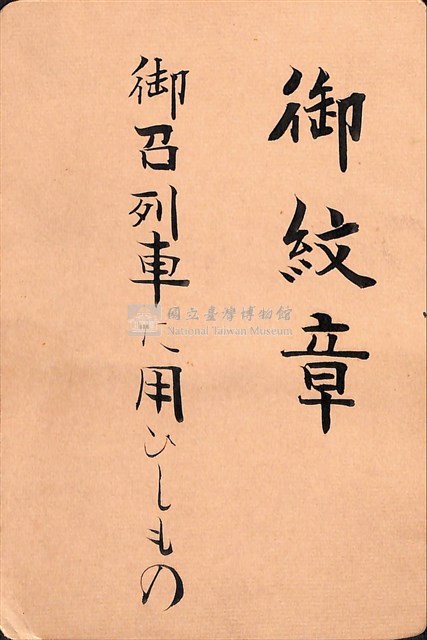 御紋章
御召列車に用ひしもの
國立臺灣博物館
National Taiwan Museum